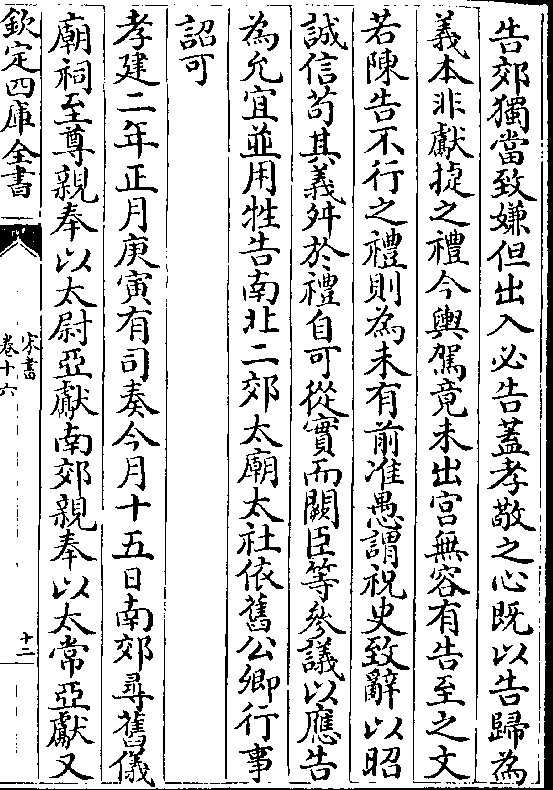 告郊獨當致嫌但出入必告蓋孝敬之心既以告歸為
義本非獻捷之禮今輿駕竟未出宮無容有告至之文
若陳告不行之禮則為未有前准愚謂祝史致辭以昭
誠信苟其義舛於禮自可從實而闕臣等參議以應告
為允宜並用牲告南北二郊太廟太社依舊公卿行事
詔可
孝建二年正月庚寅有司奏今月十五日南郊尋舊儀
廟祠至尊親奉以太尉亞獻南郊親奉以太常亞獻又
欽定四庫全書
宋書
卷十六
十二